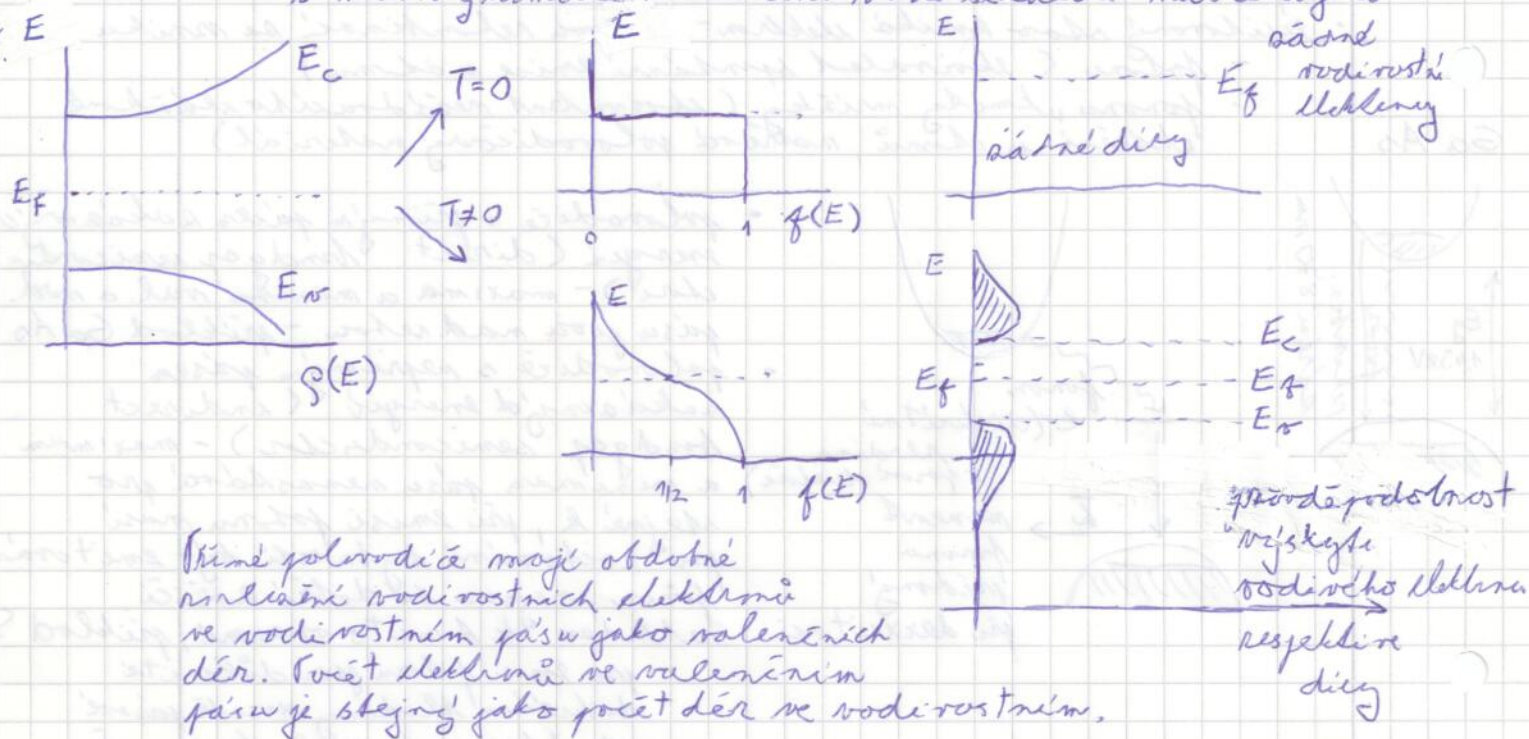 E
E_c
E_F
E_v
ρ(E)
T=0
T≠0
E
0
1
f(E)
E
1/2
1
f(E)
E
E_f
žádné
vodivostní
elektrony
žádné díry
E
E_c
E_f
E_f
E_v
pravděpodobnost
výskytu
vodivého elektronu
respektive
díry
Přímé polovodiče mají obdobné
rozložení vodivostních elektronů
ve vodivostním pásu jako valenčních
děr. Počet elektronů ve valenčním
pásu je stejný jako počet děr ve vodivostním.